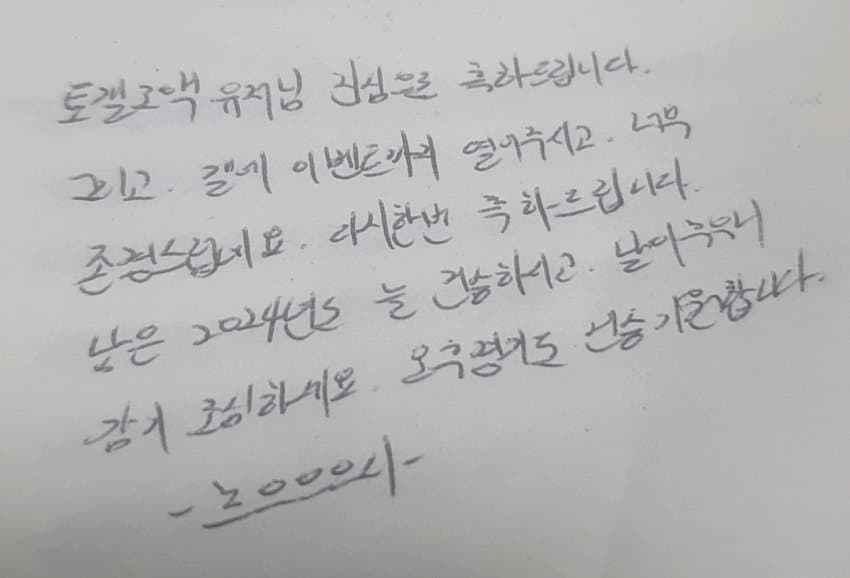 토갤고액 유저님 진심으로 축하드립니다.
그리고. 갤에 이벤트까지 열어주시고. 너무
존경스럽네요. 다시한번 축하드립니다.
남은 2024년도 늘 건승하시고. 날이추우니
감기 조심하세요. 오후경기도 건승기원합니다.